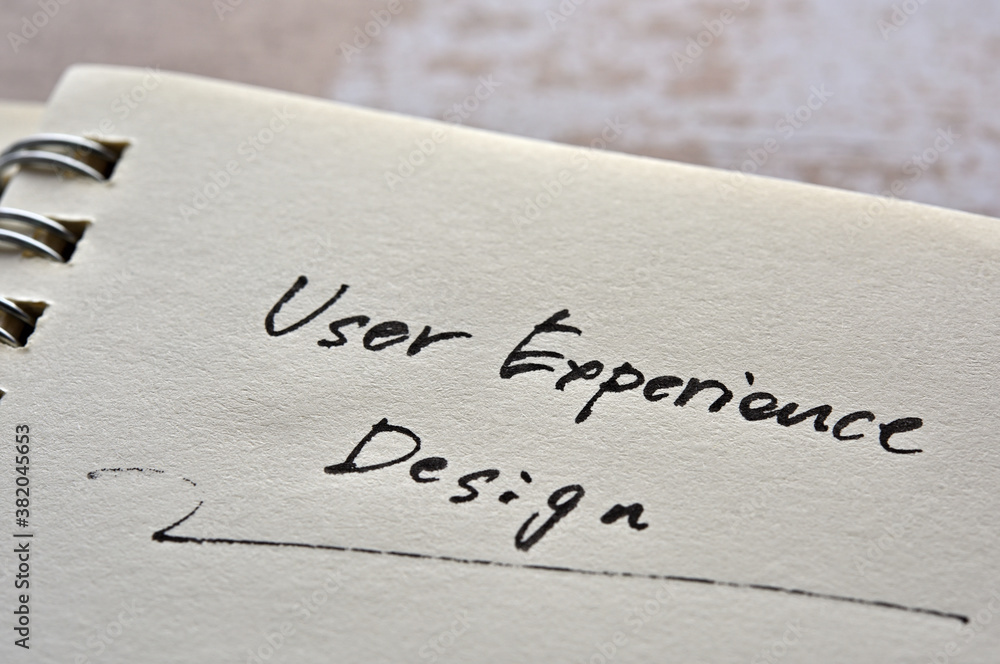 User Experience
Design
Adobe Stock | #382045653